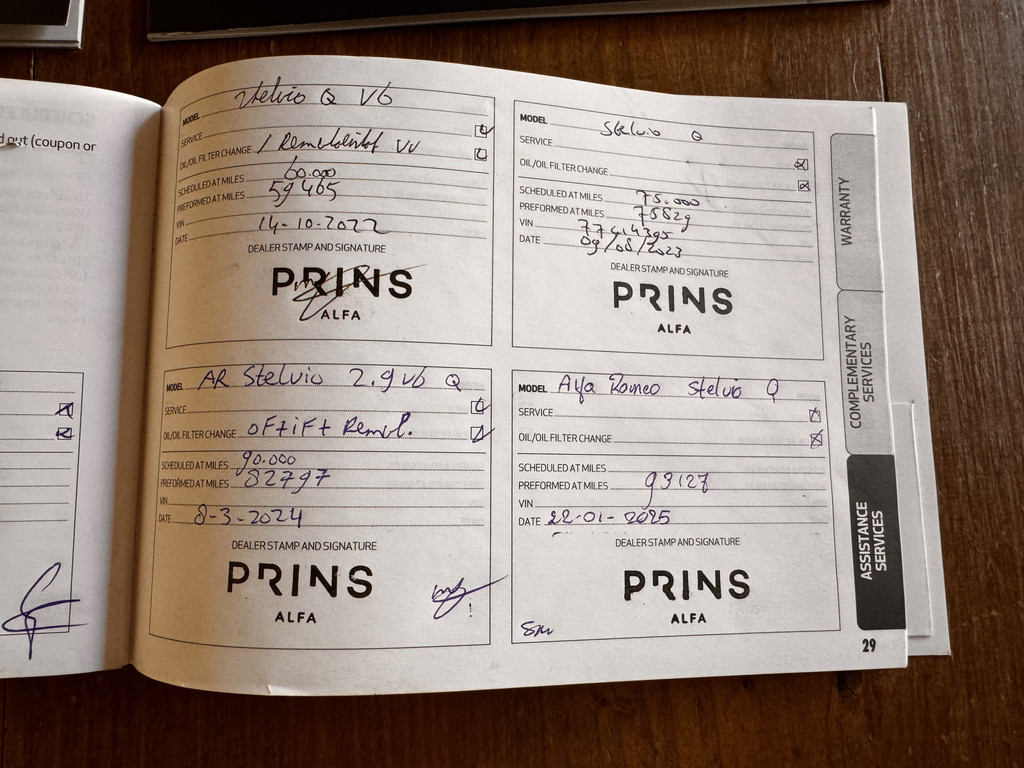 d out (coupon or
Stelvio Q V6
MODEL
SERVICE
OIL/OIL FILTER CHANGE / Remvloeistof VV
SCHEDULED AT MILES 60.000
PREFORMED AT MILES 59465
VIN
DATE 14-10-2022
DEALER STAMP AND SIGNATURE
PRINS
ALFA
MODEL Stelvio Q
SERVICE
OIL/OIL FILTER CHANGE
SCHEDULED AT MILES 75.000
PREFORMED AT MILES 75529
VIN 77414395
DATE 09/08/2023
DEALER STAMP AND SIGNATURE
PRINS
ALFA
MODEL AR Stelvio 2.9 V6 Q
SERVICE
OIL/OIL FILTER CHANGE OF+iF+ Remvl.
SCHEDULED AT MILES 90.000
PREFORMED AT MILES 82797
VIN
DATE 8-3-2024
DEALER STAMP AND SIGNATURE
PRINS
ALFA
MODEL Alfa Romeo Stelvio Q
SERVICE
OIL/OIL FILTER CHANGE
SCHEDULED AT MILES
PREFORMED AT MILES 93127
VIN
DATE 22-01-2025
DEALER STAMP AND SIGNATURE
PRINS
ALFA
WARRANTY
COMPLEMENTARY
SERVICES
ASSISTANCE
SERVICES
29